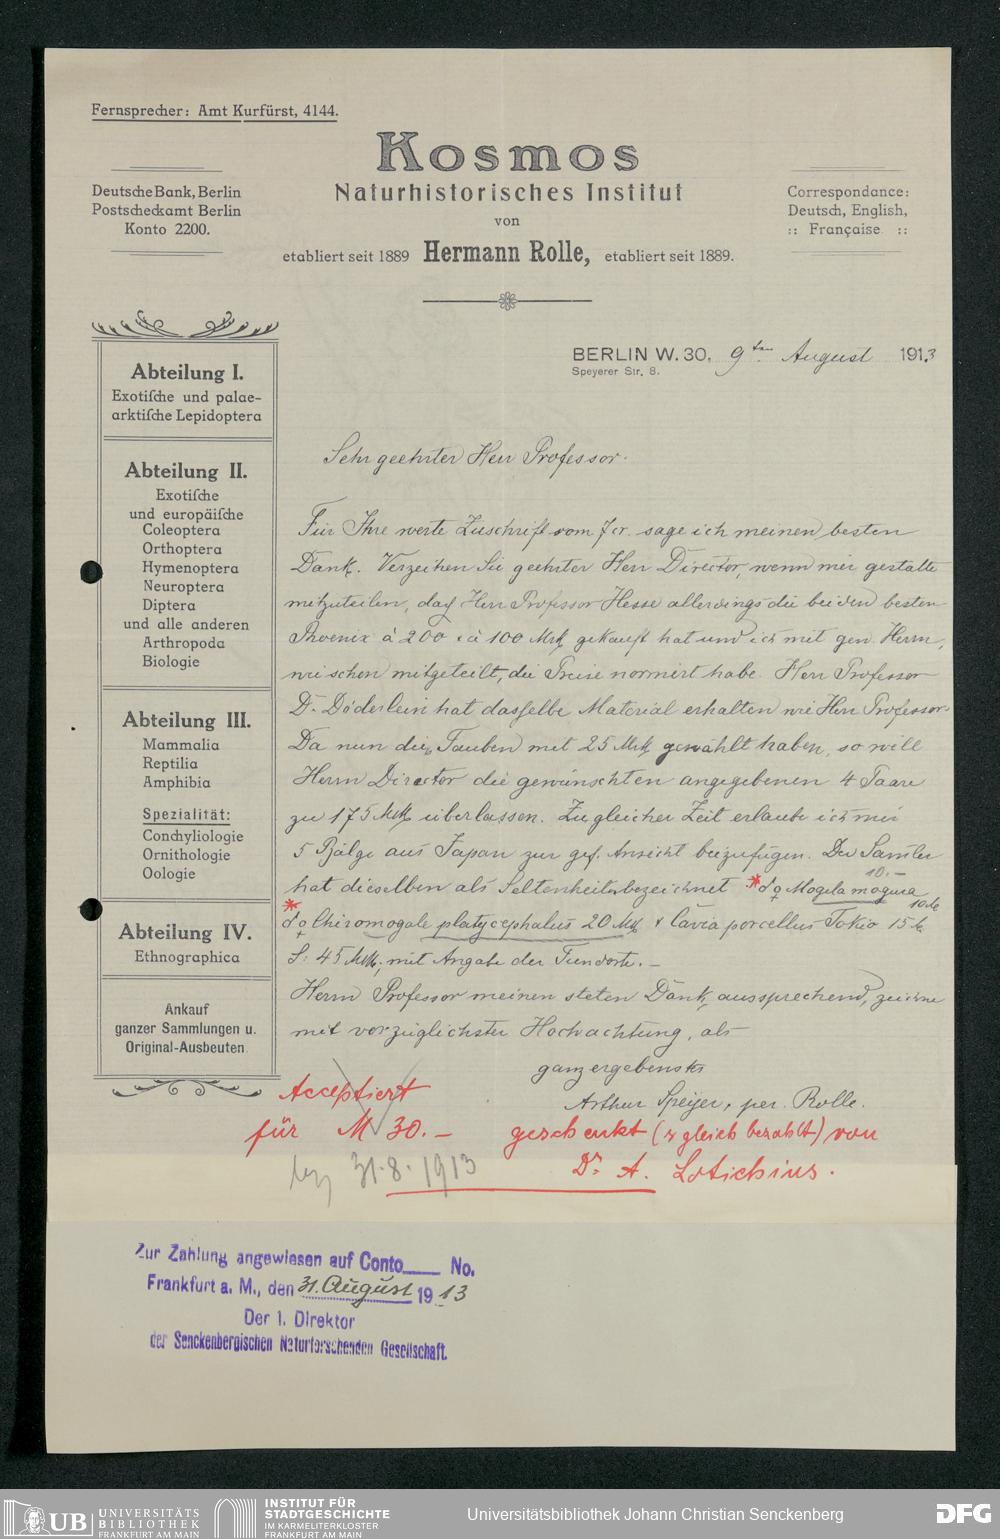 Fernsprecher: Amt Kurfürst, 4144.
Kosmos
Naturhistorisches Institut
von
etabliert seit 1889 Hermann Rolle, etabliert seit 1889.
Deutsche Bank, Berlin
Postscheckamt Berlin
Konto 2200.
Correspondance:
Deutsch, English,
:: Française ::
BERLIN W. 30, 9ten August 1913
Speyerer Str. 8.
Abteilung I.
Exotische und palae-
arktische Lepidoptera
Abteilung II.
Exotische
und europäische
Coleoptera
Orthoptera
Hymenoptera
Neuroptera
Diptera
und alle anderen
Arthropoda
Biologie
Abteilung III.
Mammalia
Reptilia
Amphibia
Spezialität:
Conchyliologie
Ornithologie
Oologie
Abteilung IV.
Ethnographica
Ankauf
ganzer Sammlungen u.
Original-Ausbeuten
Sehr geehrter Herr Professor.
Für Ihre werte Zuschrift vom 7 cr. sage ich meinen besten
Dank. Verzeihen Sie geehrter Herr Director, wenn mir gestatte
mitzuteilen, daß Herr Professor Hesse allerdings die beiden besten
Phoenix à 200 & à 100 Mrk gekauft hat und ich mit gen. Herrn,
wie schon mitgeteilt, die Preise normirt habe. Herr Professor
Dr. Döderlein hat dasselbe Material erhalten wie Herr Professor
Da nun die Tauben mit 25 Mrk gewählt haben, so will
Herrn Director die gewünschten angegebenen 4 Paare
zu 175 Mrk überlassen. Zu gleicher Zeit erlaube ich mir
5 Bälge aus Japan zur gef. Ansicht beizufügen. Der Samler
hat dieselben als Seltenheiten bezeichnet *♂♀ Mogela mogura 10.-
10 Mk
*♂♀ Chiromogale platycephalus 20 Mrk & Cavia porcellus Tokio 15 M
S: 45 Mrk, mit Angabe der Fundorte. –
Herrn Professor meinen steten Dank aussprechend, zeichne
mit vorzüglichster Hochachtung, als
ganz ergebenster
Arthur Speyer, per. Rolle.
Acceptiert
für M 30.–
geschenkt (zugleich bezahlt) von
Dr. A. Lotichius.
31.8.1913
Zur Zahlung angewiesen auf Conto____ No.
Frankfurt a. M., den 31. August 1913
Der 1. Direktor
der Senckenbergischen Naturforschenden Gesellschaft.
UB UNIVERSITÄTS
BIBLIOTHEK
FRANKFURT AM MAIN
INSTITUT FÜR
STADTGESCHICHTE
IM KARMELITERKLOSTER
FRANKFURT AM MAIN
Universitätsbibliothek Johann Christian Senckenberg
DFG